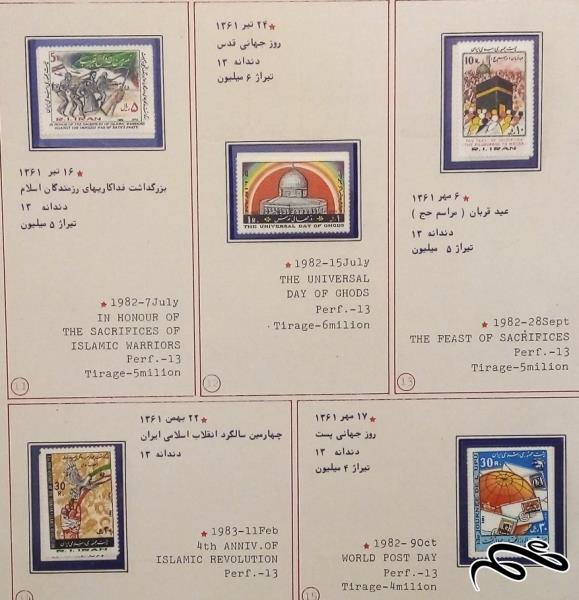 5R.
۵ ریال
R. I. IRAN
IN HONOUR OF THE SACRIFICES OF ISLAMIC WARRIORS
★ ۱۶ تیر ۱۳۶۱
بزرگداشت فداکاریهای رزمندگان اسلام
دندانه ۱۳
تیراژ ۵ میلیون
★ 1982-7July
IN HONOUR OF
THE SACRIFICES OF
ISLAMIC WARRIORS
Perf.-13
Tirage-5milion
11
★ ۲۴ تیر ۱۳۶۱
روز جهانی قدس
دندانه ۱۳
تیراژ ۶ میلیون
1R.
۱ ر.
THE UNIVERSAL DAY OF GHODS
★ 1982-15July
THE UNIVERSAL
DAY OF GHODS
Perf.-13
Tirage-6milion
12
10R.
۱۰ ر.
THE FEAST OF SACRIFICE
R. I. IRAN
★ ۶ مهر ۱۳۶۱
عید قربان ( مراسم حج )
دندانه ۱۳
تیراژ ۵ میلیون
★ 1982-28Sept
THE FEAST OF SACRIFICES
Perf.-13
Tirage-5milion
13
★ ۲۲ بهمن ۱۳۶۱
چهارمین سالگرد انقلاب اسلامی ایران
دندانه ۱۳
30 R.
۳۰ ر.
R. I. IRAN
★ 1983-11Feb
4th ANNIV.OF
ISLAMIC REVOLUTION
Perf.-13
★ ۱۷ مهر ۱۳۶۱
روز جهانی پست
دندانه ۱۳
تیراژ ۴ میلیون
30 R.
۳۰ ر.
★ 1982-9Oct
WORLD POST DAY
Perf.-13
Tirage-4milion
15